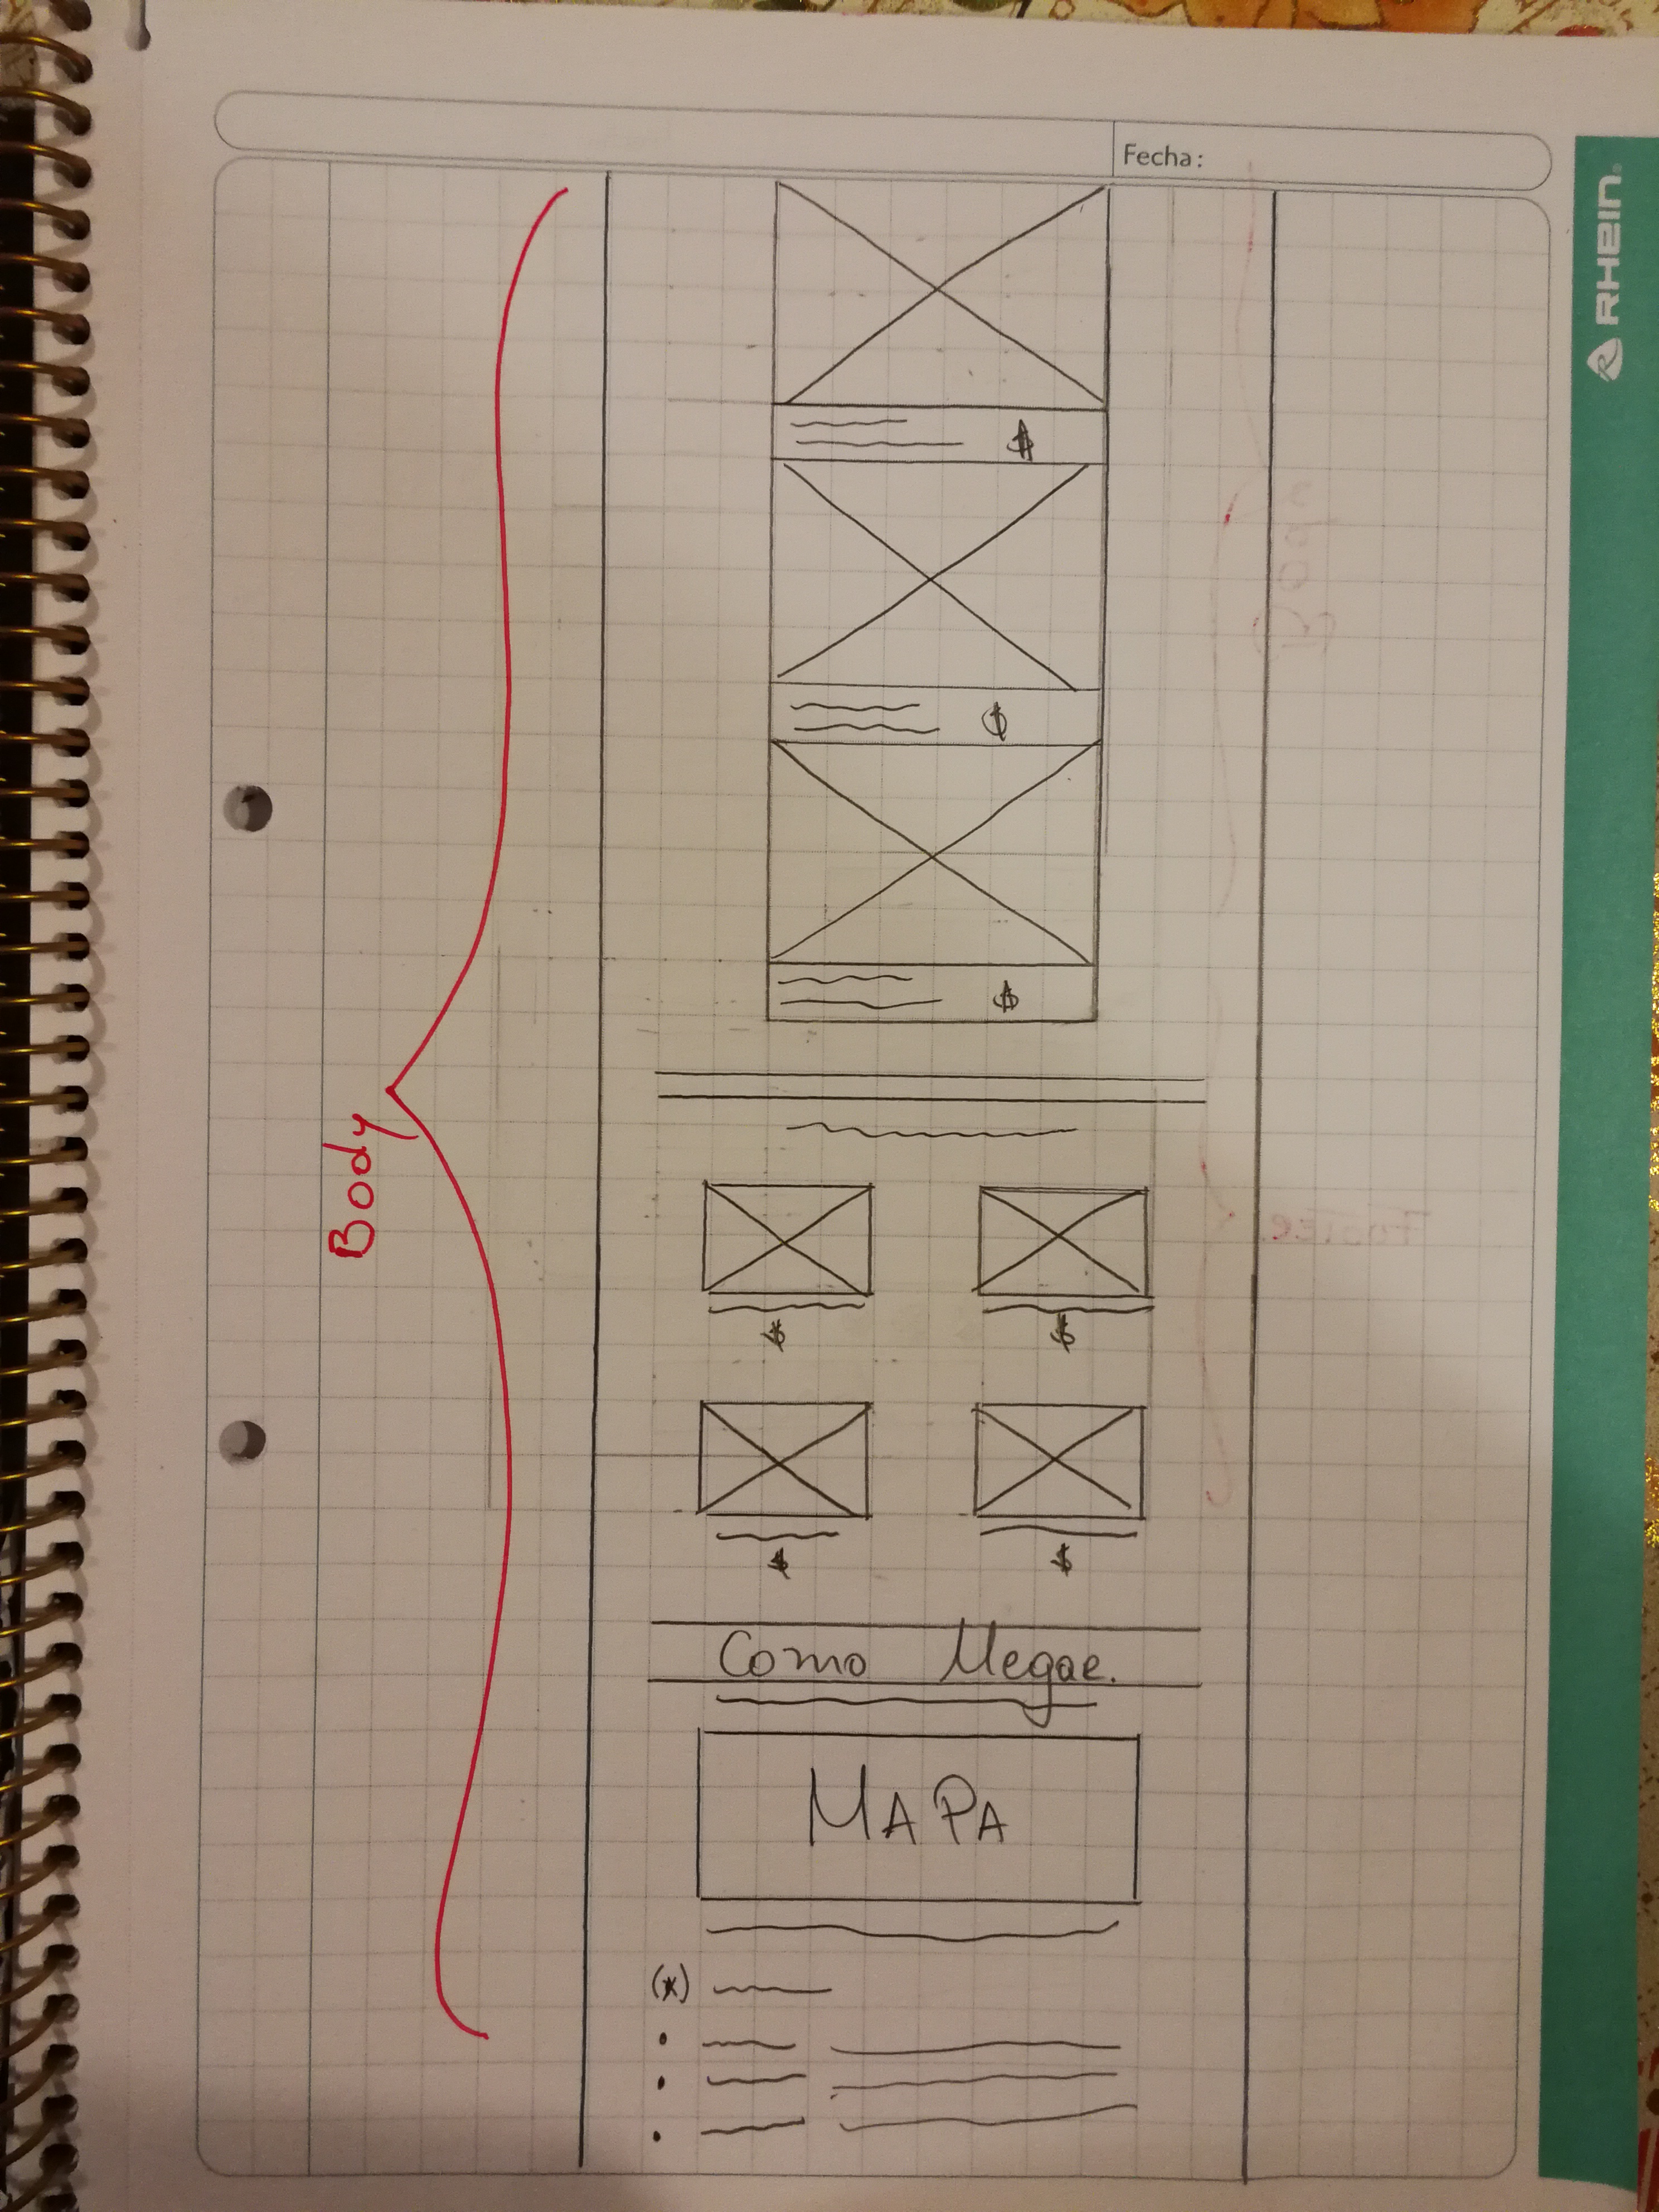 Fecha:
RHEIN
Body
$
$
$
$
$
$
$
Como llegar.
MAPA
(*)